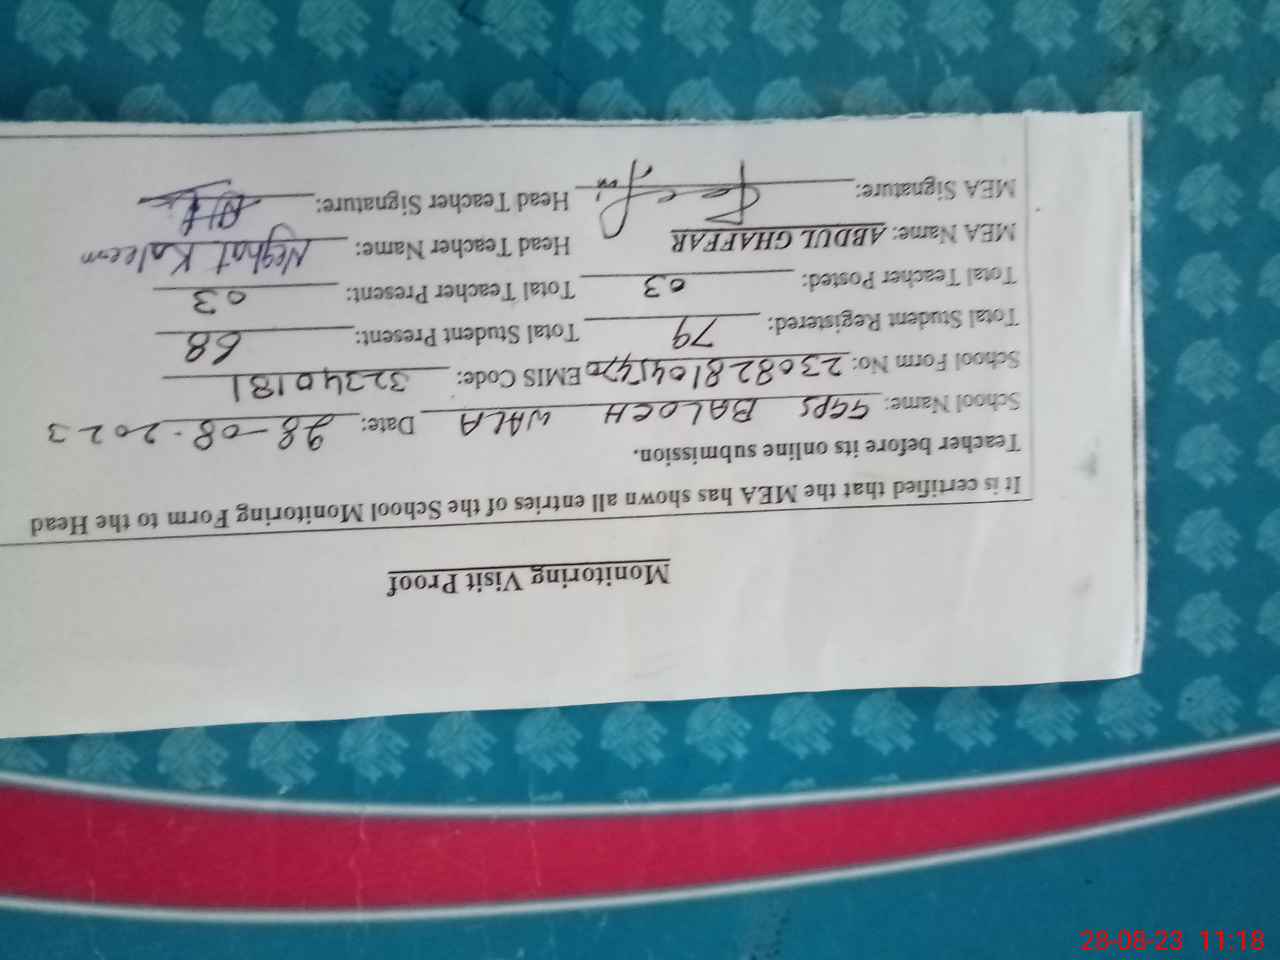 Monitoring Visit Proof
It is certified that the MEA has shown all entries of the School Monitoring Form to the Head
Teacher before its online submission.
School Name: GGPS BALOCH WALA Date: 28-08-2023
School Form No: 2308281045470 EMIS Code: 32340181
Total Student Registered: 79 Total Student Present: 68
Total Teacher Posted: 03 Total Teacher Present: 03
MEA Name: ABDUL GHAFFAR Head Teacher Name: Neghat Kaleem
MEA Signature: Head Teacher Signature:
28-08-23 11:18